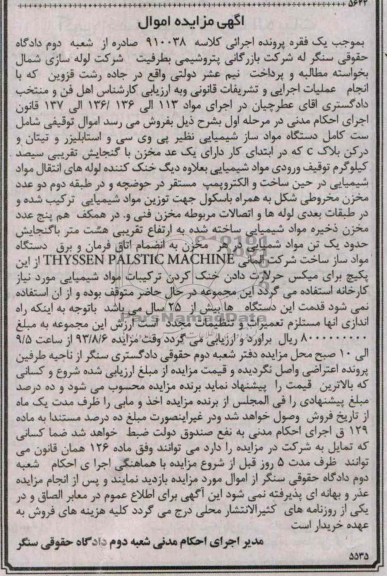 ۵۶۲۲
آگهی مزایده اموال
بموجب یک فقره پرونده اجرائی کلاسه ۹۱۰۰۳۸ صادره از شعبه دوم دادگاه
حقوقی سنگر له شرکت بازرگانی پتروشیمی بطرفیت شرکت لوله سازی شمال
بخواسته مطالبه و پرداخت نیم عشر دولتی واقع در جاده رشت قزوین که با
انجام عملیات اجرایی و تشریفات قانونی وبه ارزیابی کارشناس اهل فن و منتخب
دادگستری آقای عطرچیان در اجرای مواد ۱۱۳ الی ۱۳۶/ ۱۳۶ الی ۱۳۷ قانون
اجرای احکام مدنی در مرحله اول بشرح ذیل بفروش می رسد اموال توقیفی شامل
ست کامل دستگاه مواد ساز شیمیایی نظیر پی وی سی و استابلیزر و تیتان و
درکن بلاک c که در ابتدای کار دارای یک عد مخزن با گنجایش تقریبی سیصد
کیلوگرم توقیف ورودی مواد شیمیایی بعلاوه دیگ خنک کننده لوله های انتقال مواد
شیمیایی در حین ساخت و الکتروپمپ مستقر در حوضچه و در طبقه دوم دو عدد
مخزن مخروطی شکل به همراه باسکول جهت توزین مواد شیمیایی ترکیب شده و
در طبقات بعدی لوله ها و اتصالات مربوطه مخزن فنی و. در همکف هم پنج عدد
مخزن ذخیره مواد شیمیایی ساخته شده به ارتفاع تقریبی هشت متر باگنجایش
حدود یک تن مواد شیمیایی در هر مخزن به انضمام اتاق فرمان و برق دستگاه
مواد ساز ساخت شرکت آلمانی THYSSEN PALSTIC MACHINE از این
پکیج برای میکس حرارت دادن خنک کردن ترکیبات مواد شیمیایی مورد نیاز
کارخانه استفاده می گردد این مجموعه در حال حاضر متوقف بوده و از آن استفاده
نمی شود قدمت این دستگاه ها بیش از ۲۵ سال می باشد باتوجه به اینکه راه
اندازی آنها مستلزم تعمیرات و تنظیمات مجدد است ارزش این مجموعه به مبلغ
۸۰۰۰۰۰۰۰۰ ریال برآورد و ارزیابی می گردد وقت مزایده ۹۳/۸/۶ از ساعت ۹/۵
الی ۱۰ صبح محل مزایده دفتر شعبه دوم حقوقی دادگستری سنگر از ناحیه طرفین
پرونده اعتراضی واصل نگردیده و قیمت مزایده از مبلغ ارزیابی شده شروع و کسانی
که بالاترین قیمت را پیشنهاد نماید برنده مزایده محسوب می شود و ده درصد
مبلغ پیشنهادی را فی المجلس از برنده مزایده اخذ و مابی را ظرف مدت یک ماه
از تاریخ فروش وصول خواهد شد ودر غیراینصورت مبلغ ده درصد مستندا به ماده
۱۲۹ ق اجرای احکام مدنی به نفع صندوق دولت ضبط خواهد شد ضما کسانی
که تمایل به شرکت در مزایده را دارد می توانند وفق ماده ۱۲۶ همان قانون می
توانند ظرف مدت ۵ روز قبل از شروع مزایده با هماهنگی اجرا ی احکام شعبه
دوم دادگاه حقوقی سنگر از اموال مورد مزایده بازدید نمایند و پس از انجام مزایده
عذر و بهانه ای پذیرفته نمی شود این آگهی برای اطلاع عموم در معابر الصاق و در
یکی از روزنامه های کثیرالانتشار محلی درج می گردد کلیه هزینه های فروش به
عهده خریدار است
مدیر اجرای احکام مدنی شعبه دوم دادگاه حقوقی سنگر
۵۵۳۵